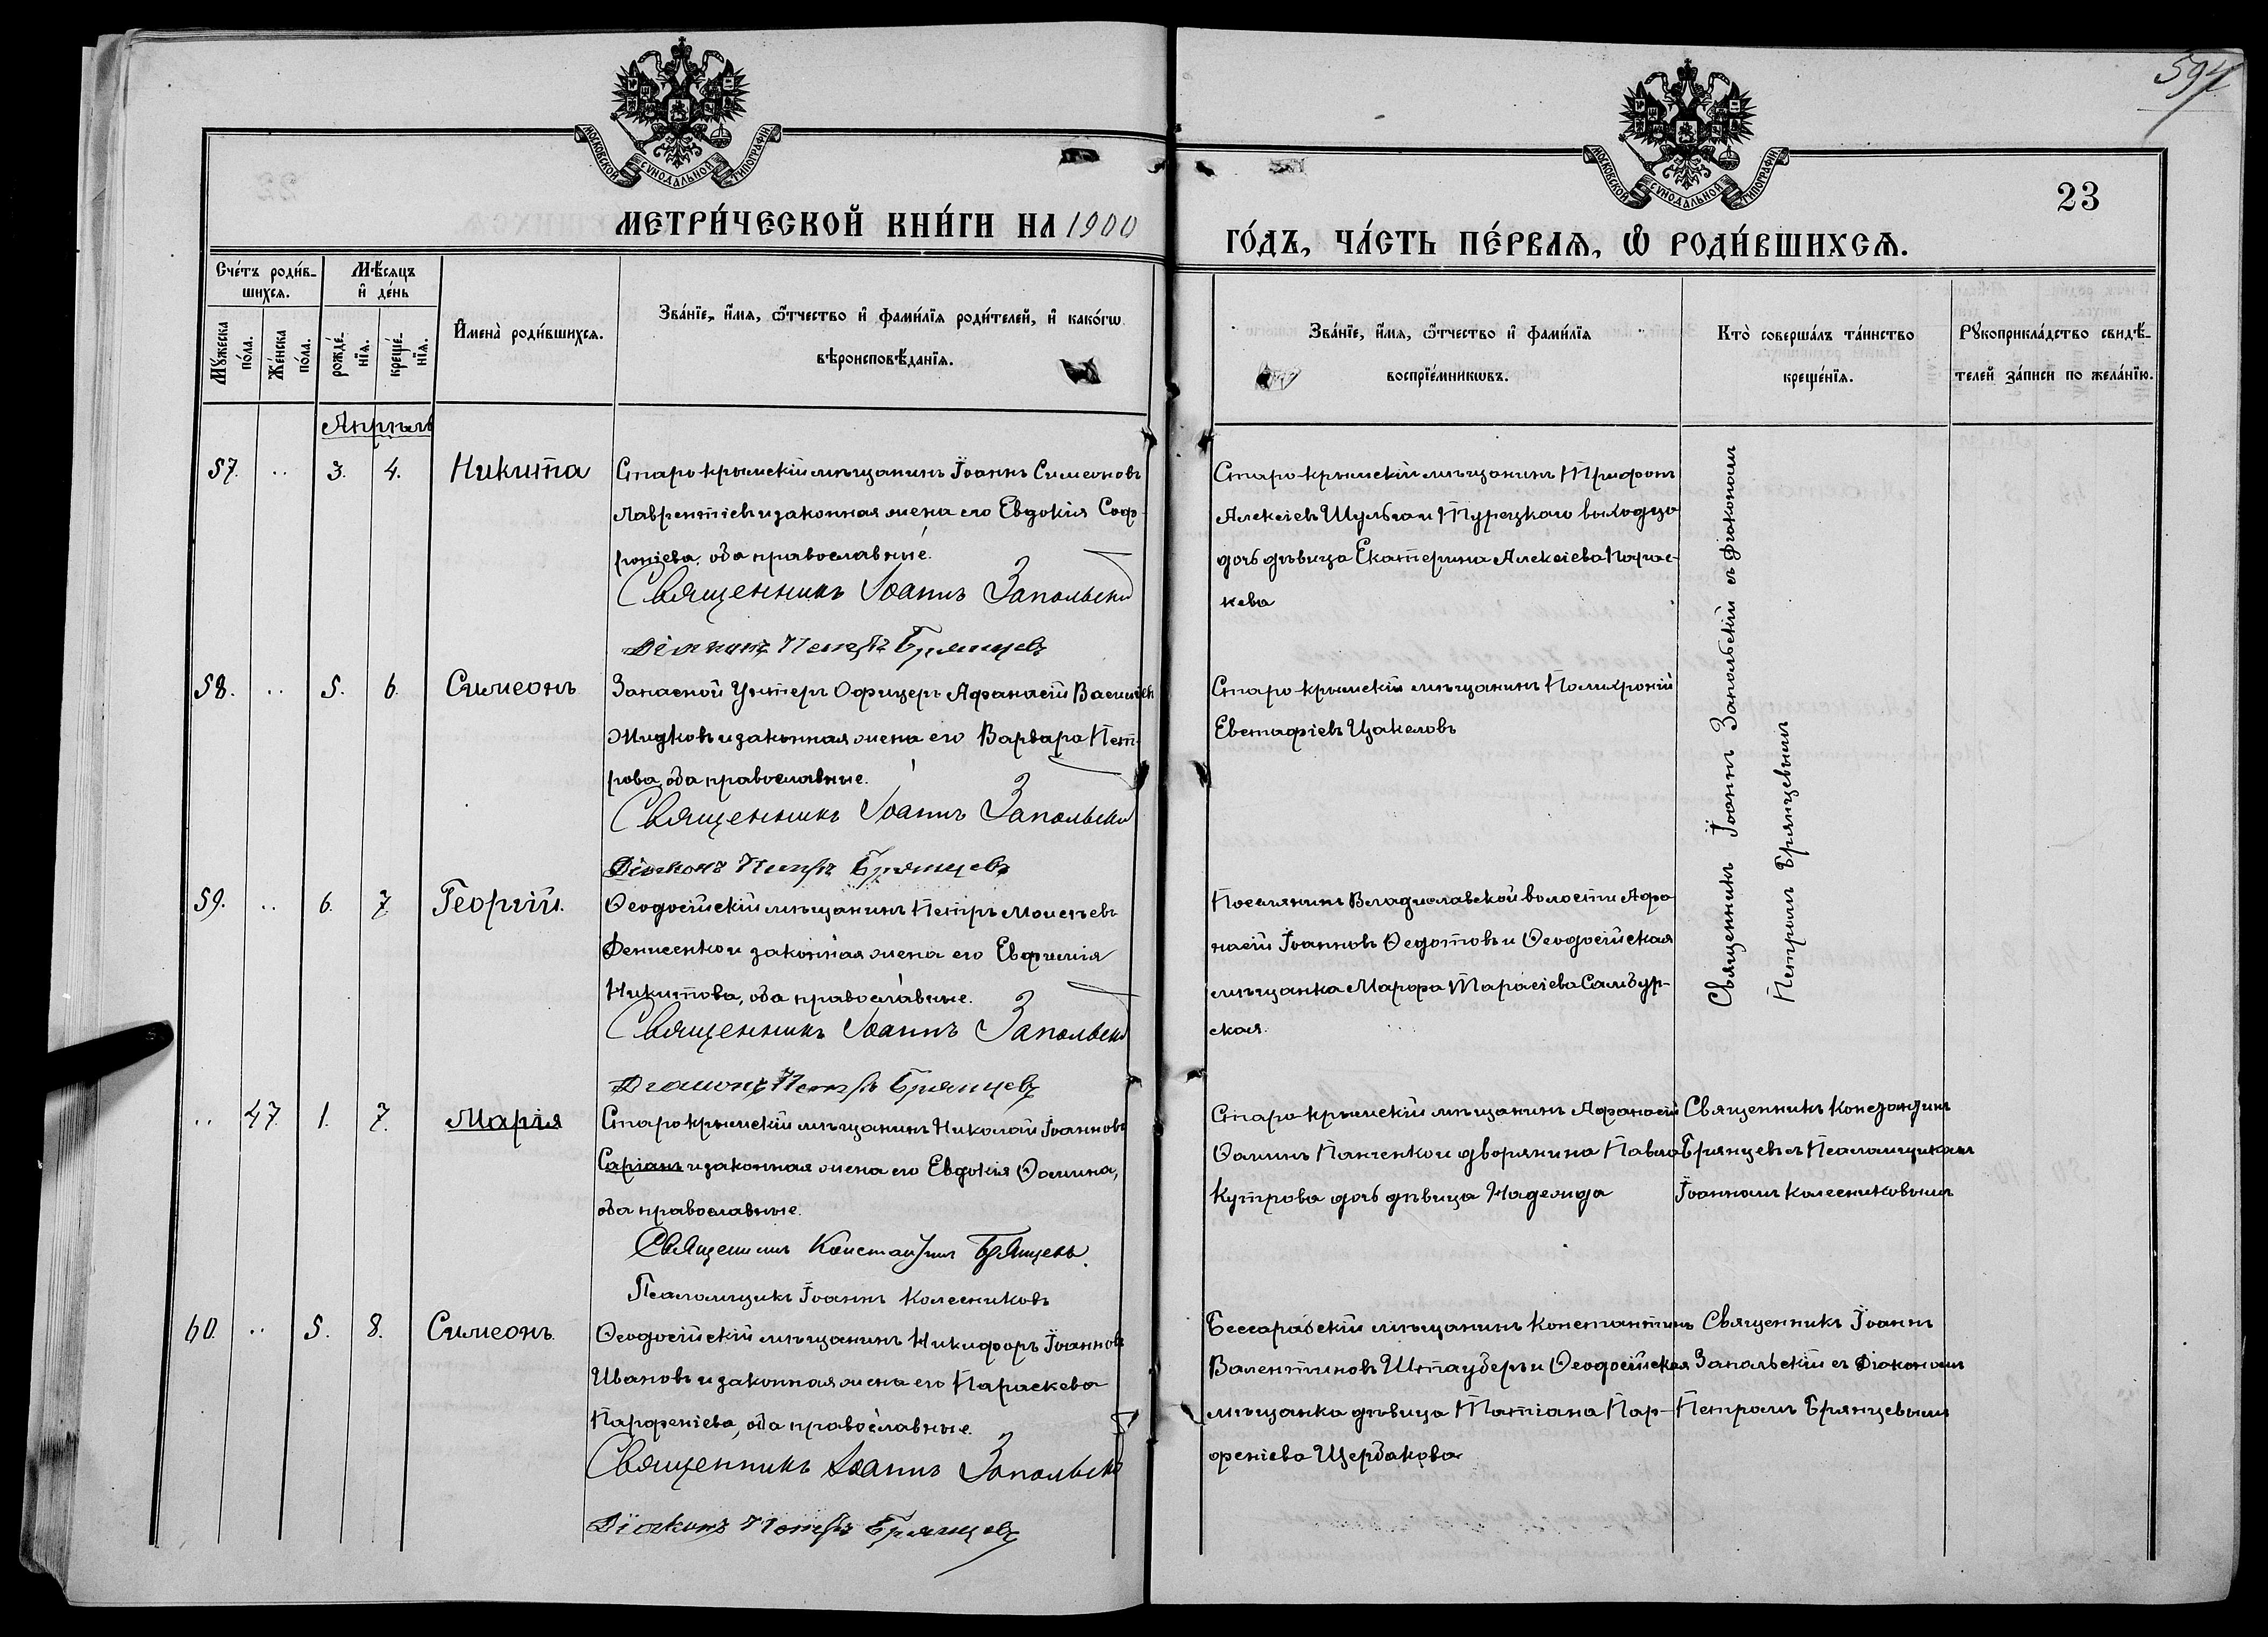 594
МОСКОВСКОЙ СѴНОДАЛЬНОЙ ТИПОГРАФІИ
МОСКОВСКОЙ СѴНОДАЛЬНОЙ ТИПОГРАФІИ
23
МЕТРИ́ЧЕСКОЙ КНИ́ГИ НА 1900
ГО́ДЪ, ЧА́СТЬ ПЕ́РВАѦ, Ѿ РОДИ́ВШИХСѦ.
Сче́тъ роди́в-
шихсѧ.
Мꙋ́жеска
по́ла.
Же́нска
по́ла.
Мѣ́сѧцъ
и҆ де́нь
рожде́-
нїѧ.
креще́-
нїѧ.
И҆мена̀ роди́вшихсѧ.
Зва́нїе, и҆́мѧ, ѻ҆́тчество и҆ фами́лїѧ роди́телей, и҆ како́гѡ
вѣроисповѣ́данїѧ.
Зва́нїе, и҆́мѧ, ѻ҆́тчество и҆ фами́лїѧ
воспрїе́мникѡвъ.
Кто̀ соверша́лъ та́инство
креще́нїѧ.
Рꙋкоприкла́дство свидѣ́-
телей за́писи по жела́нїю.
Апрѣль
57. .. 3. 4. Никита
Старо-крымскій мѣщанинъ Іоаннъ Симеоновъ
Лаврентіевъ и законная жена его Евдокія Соф-
роніева, оба православные.
Священникъ Іоаннъ Запольскій
Діаконъ Петръ Брянцевъ
Старо-крымскій мѣщанинъ Трифонъ
Алексіевъ Шульга и Турецкаго выходца
дочь дѣвица Екатерина Алексіева
кева
Священникъ Іоаннъ Запольскій съ діакономъ
Петромъ Брянцевымъ
58. .. 5. 6. Симеонъ
Запасной Унтеръ Офицеръ Афанасій Василіевъ
Жидковъ и законная жена его Варвара Пет-
рова, оба православные.
Священникъ Іоаннъ Запольскій
Діаконъ Петръ Брянцевъ
Старо-крымскій мѣщанинъ Полихроній
Евстафіевъ Цакеловъ
59. .. 6. 7. Георгій.
Ѳеодосійскій мѣщанинъ Петръ Моисеевъ
Денисенко и законная жена его Евфимія
Никитова, оба православные.
Священникъ Іоаннъ Запольскій
Діаконъ Петръ Брянцевъ
Поселянинъ Владиславской волости Афа-
насій Іоанновъ Ѳедотовъ и Ѳеодосійская
мѣщанка Марфа Тарасіева Самбур-
ская.
.. 47. 1. 7. Марія
Старо крымскій мѣщанинъ Николай Іоанновъ
Саріанъ и законная жена его Евдокія Ѳомина,
оба православные.
Священникъ Константинъ Брянцевъ.
Псаломщикъ Іоаннъ Колесниковъ
Старо-крымскій мѣщанинъ Афанасій
Ѳоминъ Панченко и дворянина Павла
Кутрова дочь дѣвица Надежда
Священникъ Константинъ
Брянцевъ съ Псаломщикомъ
Іоанномъ Колесниковымъ
60. .. 5. 8. Симеонъ.
Ѳеодосійскій мѣщанинъ Никифоръ Іоанновъ
Ивановъ и законная жена его Параскева
Парфеніева, оба православные.
Священникъ Іоаннъ Запольскій
Діаконъ Петръ Брянцевъ
Бессарабскій мѣщанинъ Константинъ
Валентиновъ Штауберъ и Ѳеодосійская
мѣщанка дѣвица Татіана Пар-
феніева Щербакова
Священникъ Іоаннъ
Запольскій съ Діакономъ
Петромъ Брянцевымъ